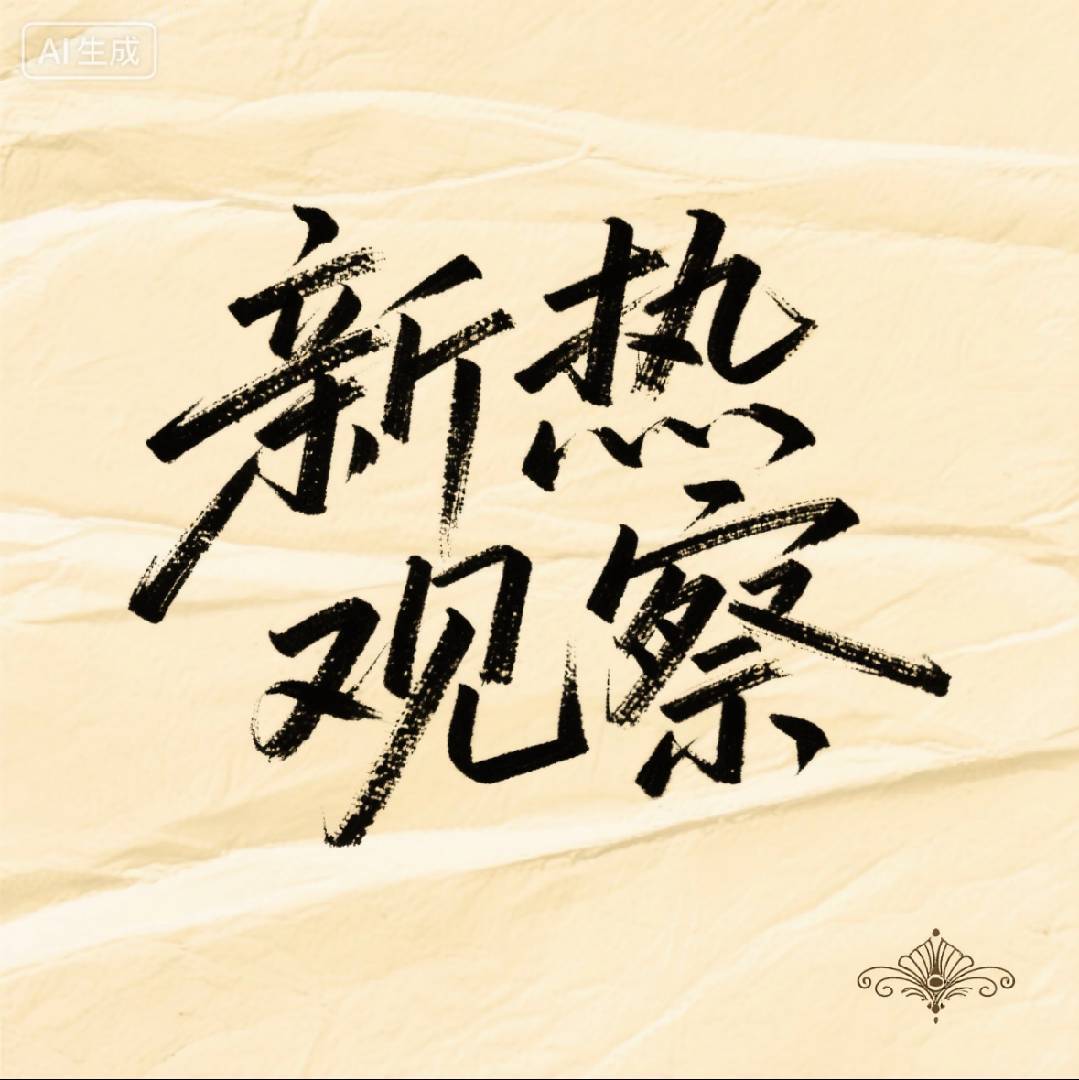 AI生成
新热
观察